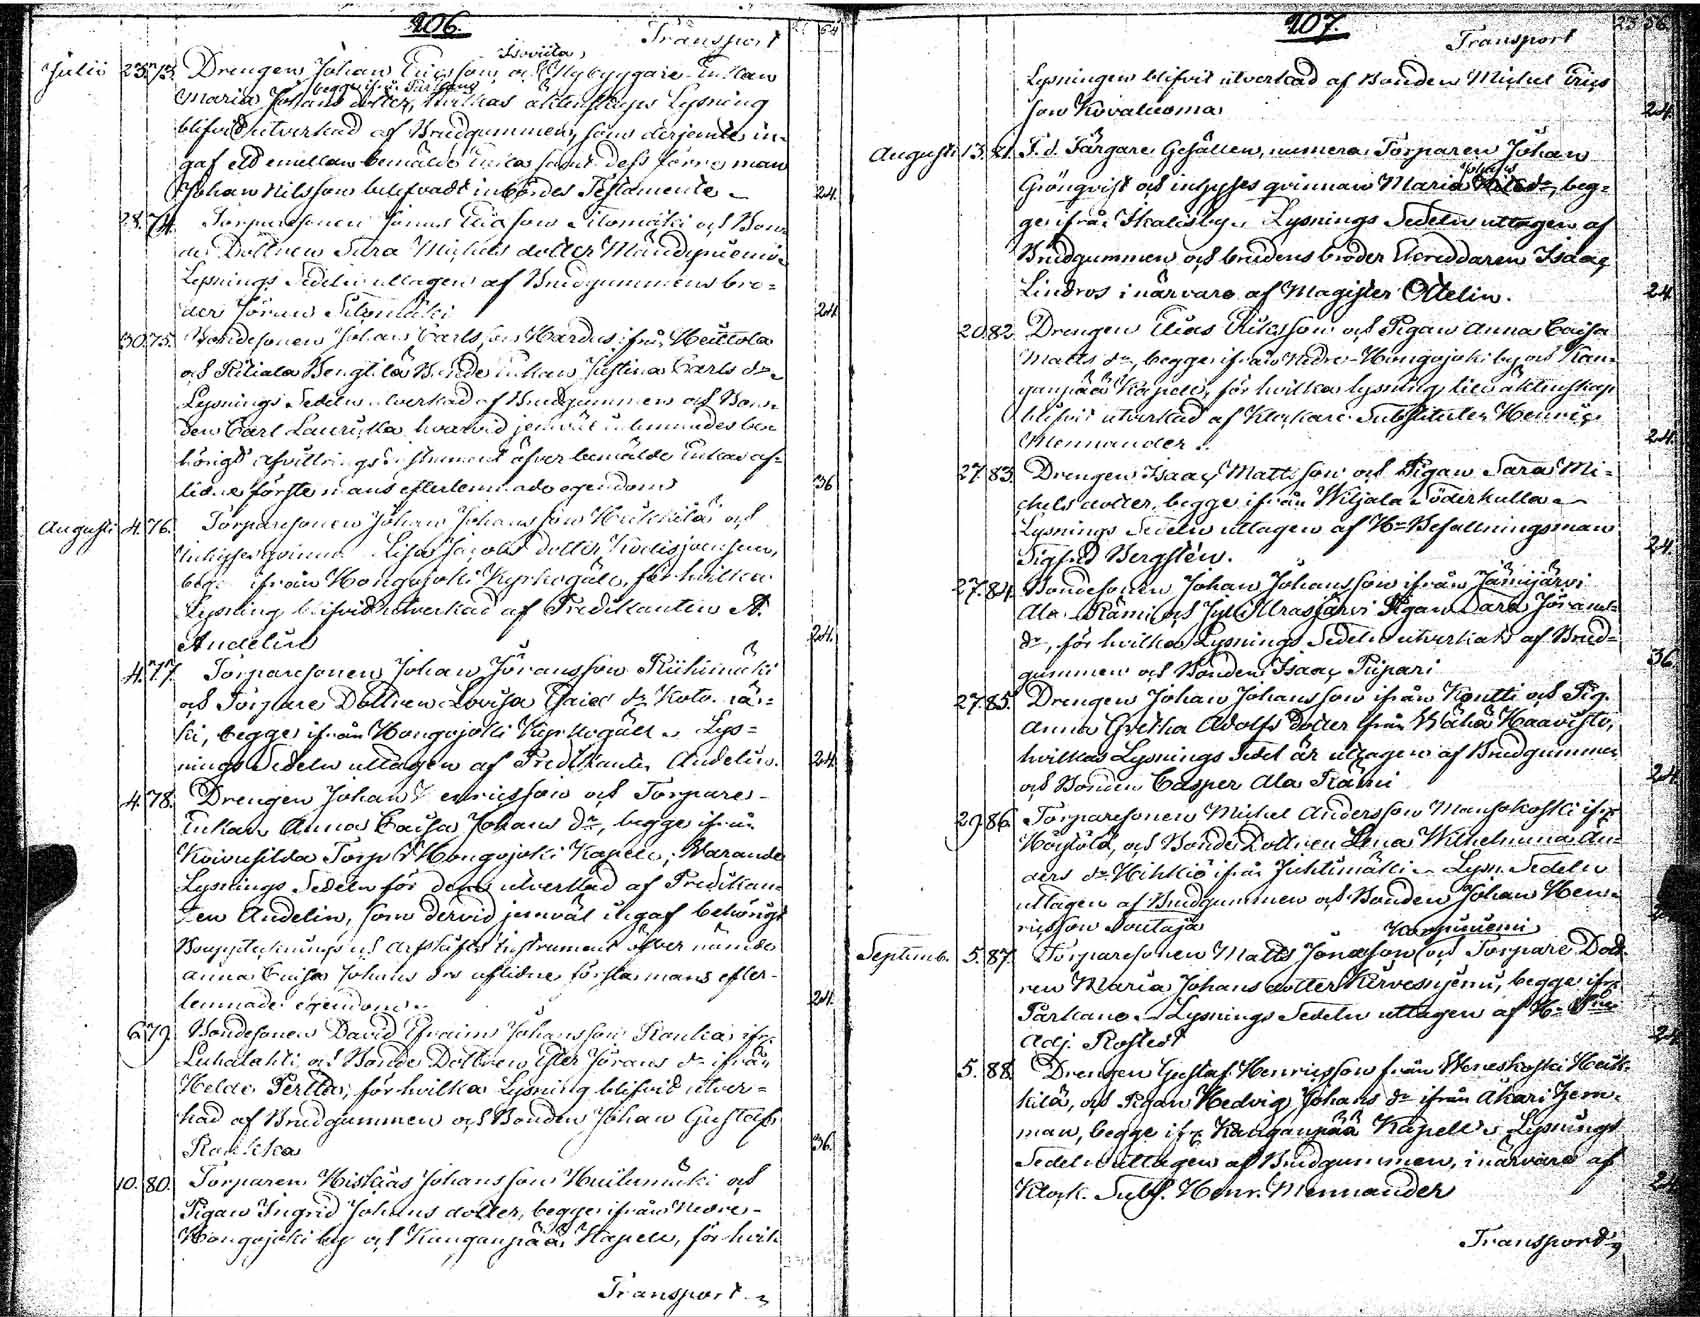 206.
Transport 54
Julii 23. 73. Drengen Johan Ericsson och Nybyggare Enkan
Isoviita
begge ifrån
Maria Johans dotter, hvilkas äktenskaps Lysning
blifvit utverkad af Brudgummen, som derjemte in-
gaf ett emellan bemälde Enka samt dess förre man
Johan Nilsson inbördes Testamente 24.
28. 74. Torparesonen Jonas Ericsson och Bon-
de Dottren Sara Michels dotter
Lysnings Sedeln uttagen af Brudgummens bro-
der Jöran 24
30. 75. Bondesonen Johan Carlsson ifrån Heittola
och Bengtilä Bonde Enkan Justina Carls dr
Lysnings Sedeln utverkad af Brudgummen och Bon-
den Carl Laurikka hvarvid jemväl inlemnades be-
hörigt afvittrings instrument öfver bemälde Enkas af-
lidne förste mans efterlemnade egendom 36
Augusti 4. 76. Torparesonen Johan Johansson Heikkilä och
Inhyses qvinnan Lisa Jacobs dotter
begge ifrån Hongojoki Kyrkogäll, för hvilka
Lysning blifvit utverkad af Predikanten A.
Andelin 24.
4. 77. Torparesonen Johan Jöransson Riihimäki
och Torpare Dottren Lovisa Esaias dr
ki, begge ifrån Hongojoki Kyrkogäll Lys-
nings Sedeln uttagen af Predikanten Andelin. 24.
4. 78. Drengen Johan Henricsson och Torpare-
Enkan Anna Caisa Johans dr, begge ifrån
Koivusilda Torp i Hongojoki Kapell, Warande
Lysnings Sedeln för dem utverkad af Predikan-
ten Andelin, som dervid jemväl ingaf behörigt
Bouppteknings och Arfskiftes Instrument öfver nämde
Anna Caisa Johans drs aflidne första mans efter-
lemnade egendom 24.
6. 79. Bondesonen David Efraim Johansson Rankka ifr.
Luhalahti och Bonde Dottren Ester Jörans dr ifrån
Pertto, för hvilka Lysning blifvit utver-
kad af Brudgummen och Bonden Johan Gustafss.
Rankka 36.
10. 80. Torparen Hiskias Johansson och
Pigan Ingrid Johans dotter, begge ifrån Nedre-
Hongojoki by och Kanganpää Kapell, för hvilk
Transport
207.
Transport 25 56
Lysningen blifvit utverkad af Bonden Michel Erics
son Kovaluoma 24
Augusti 13. 81. F. d. Färgare Gesällen, numera Torparen Johan
Grönqvist och inhyses qvinnan Maria dr, beg-
ge ifrån Skalisby. Lysnings Sedeln uttagen af
Brudgummen och brudens broder Skreddaren Isaac
Lindros i närvaro af Magister Ottelin. 24
20. 82. Drengen Elias Ericsson och Pigan Anna Caisa
Matts dr, begge ifrån Nedre-Hongojoki by och Kan-
ganpää Kapell, för hvilka lysning till äktenskap
blifvit utverkad af Klockare Substituten Henric
Mennander 24.
27. 83. Drengen Isaac Mattsson och Pigan Sara Mi-
chels dotter, begge ifrån Wiljala Söderkulla
Lysnings Sedeln uttagen af Hr Befallningsman
Sigfrid Bergstén. 24.
27. 84. Bondesonen Johan Johansson ifrån Jämijärvi
Ala Rämi och Pigan Sara Jörans-
dr, för hvilka Lysnings Sedeln utverkats af Brud-
gummen och Bonden Isaac Piipari 36.
27. 85. Drengen Johan Johansson ifrån Kontti och Pig.
Anna Gretha Adolfs dotter från Wähä Haavisto,
hvilkas Lysnings Sedel är uttagen af Brudgummen
och Bonden Casper Ala Rämi 24
29. 86. Torparesonen Michel Andersson Mansokoski ifr.
Höytölä, och Bonde Dottren Lena Wilhelmina An-
ders dr Hihkiö ifrån Juhtimäki Lysn. Sedeln
uttagen af Brudgummen och Bonden Johan Hen-
ricsson Soutaja
Septemb. 5. 87. Torparesonen Matts Jonasson och Torpare Dott-
ren Maria Johans dotter Kirvesnjemi, begge ifr.
Parkano. Lysnings Sedeln uttagen af Hr
Adj. Rostedt 24
5. 88. Drengen Gustaf Henricsson från Weneskoski Heik-
kilä, och Pigan Hedvig Johans dr ifrån Äkäri Jem-
man, begge ifr. Kanganpää Kapell. Lysnings
Sedeln uttagen af Brudgummen, i närvaro af
Klock. Subst. Henr. Mennander 24
Transport